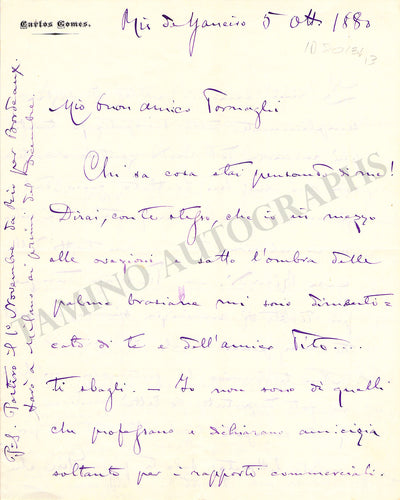 Carlos Gomes.
Rio de Janeiro 5 Ott. 1880
Mio buon amico Tornaghi
Chi sa cosa stai pensando di me!
Dirai, con te stesso, che io in mezzo
alle ovazioni e sotto l'ombra delle
palme brasiane mi sono dimenti=
cato di te e dell'amico Tito....
ti sbagli. — Io non sono di quelli
che professano e dichiarano amicizia
soltanto per i rapporti commerciali.
P.S. Partirò il 1º Novembre da Rio per Bordeaux.
Sarò a Milano ai primi del Dicembre.
TAMINO AUTOGRAPHS